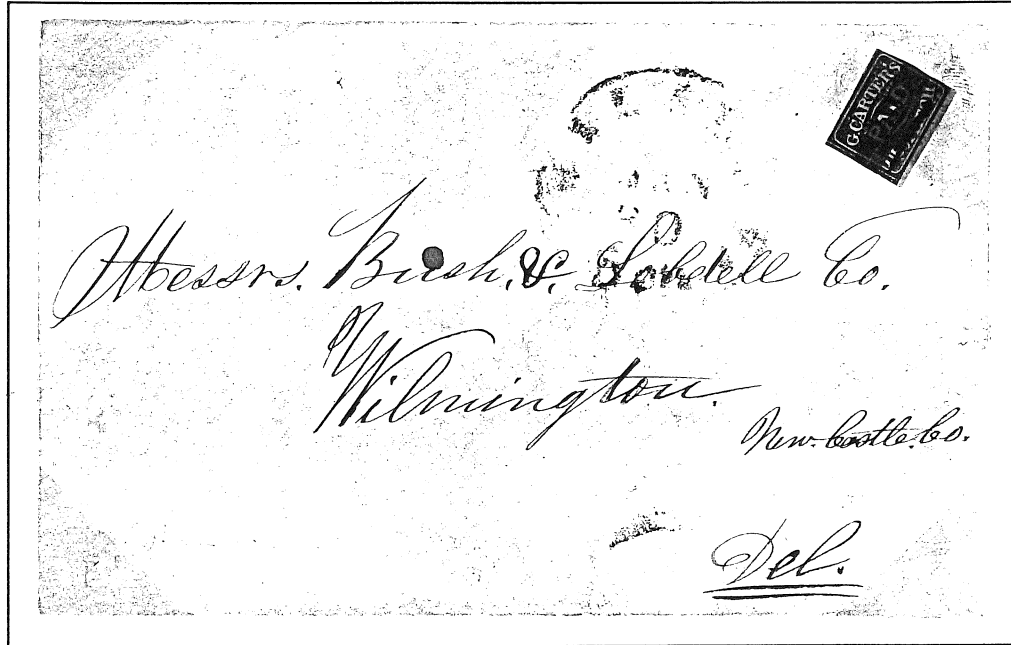 G. CARTER'S
PAID
Messrs. Bush. & Lobdell Co.
Wilmington.
New. Castle. Co.
Del.